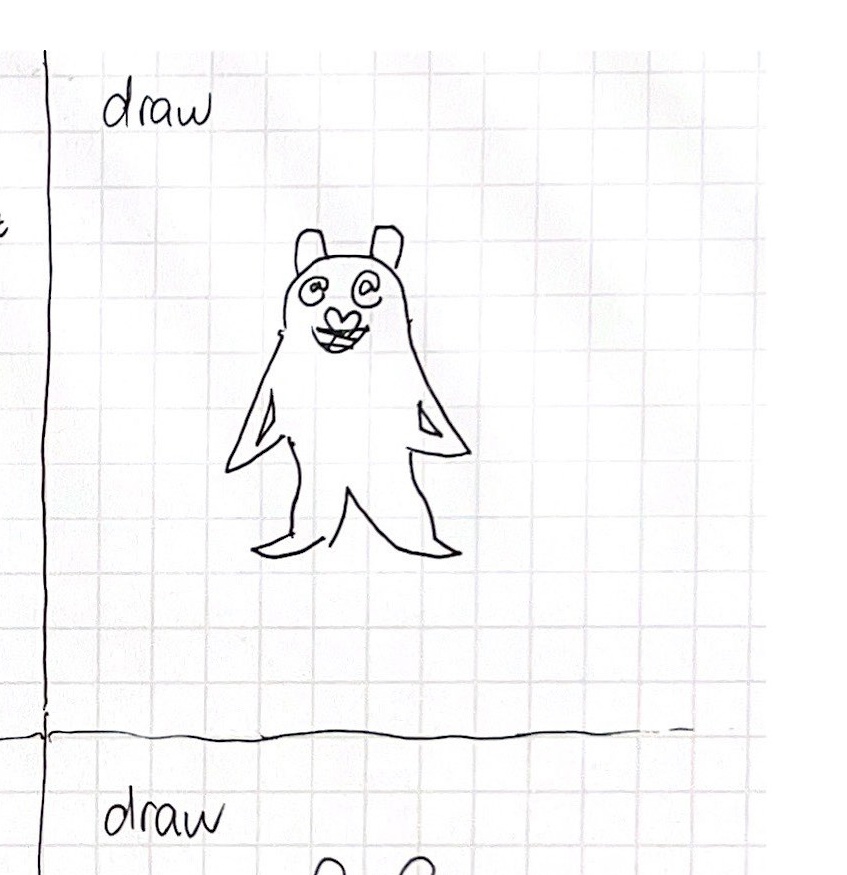 draw
draw